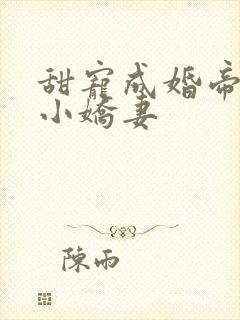 甜寵成婚帝
小嬌妻
陳雨